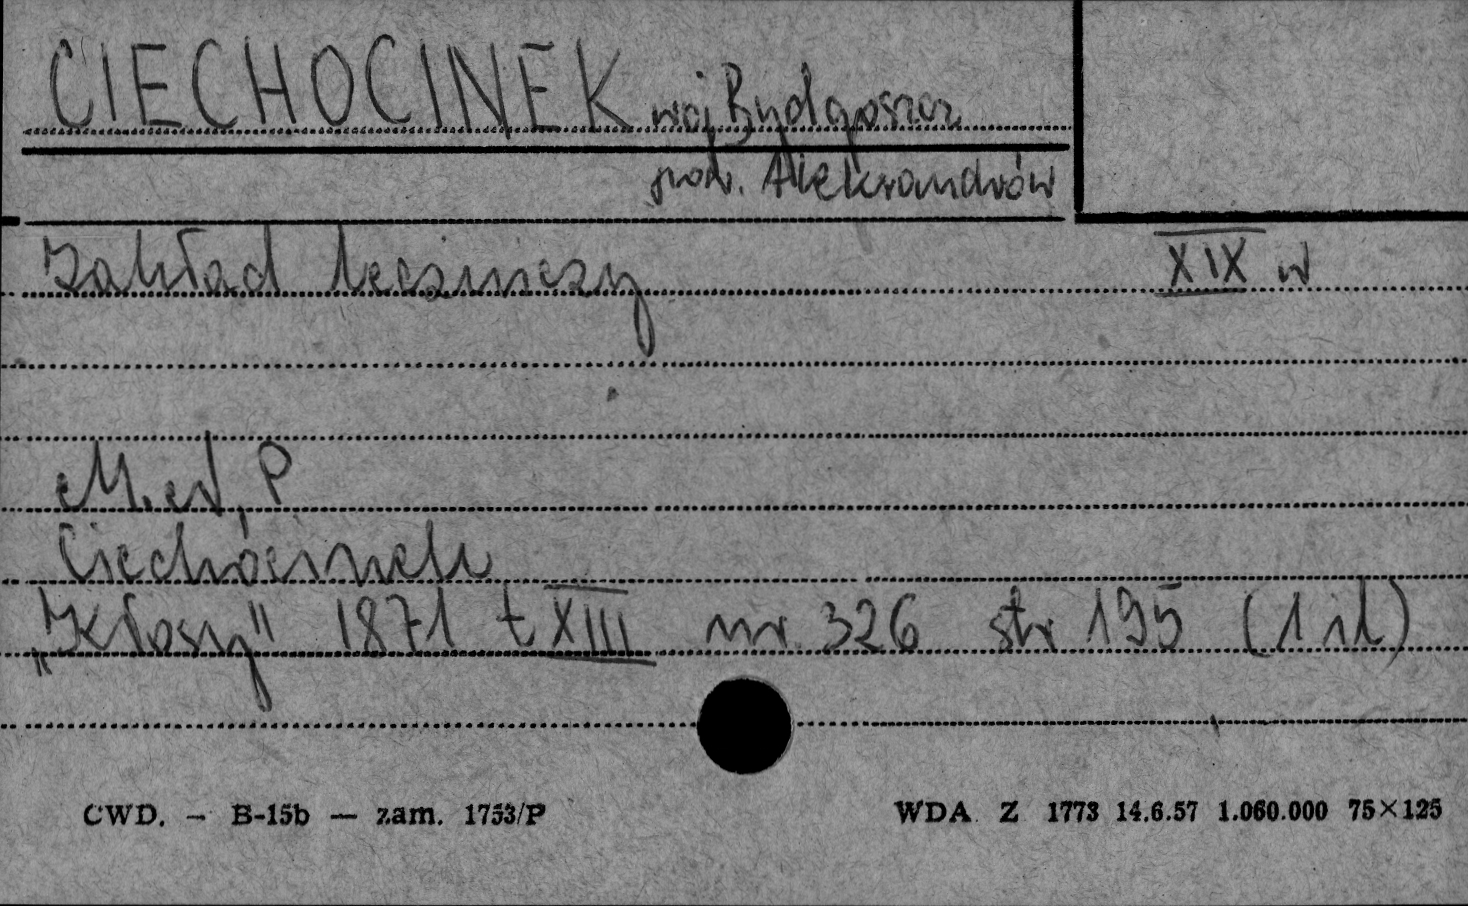 CIECHOCINEK woj Bydgoszcz
pow. Aleksandrów
Zakład leczniczy XIX w
M. P
Ciechocinek
„Kłosy" 1871 t XIII nr 326 str 195 (1 il)
CWD. — B-15b — zam. 1753/P WDA. Z 1773 14.6.57 1.060.000 75×125